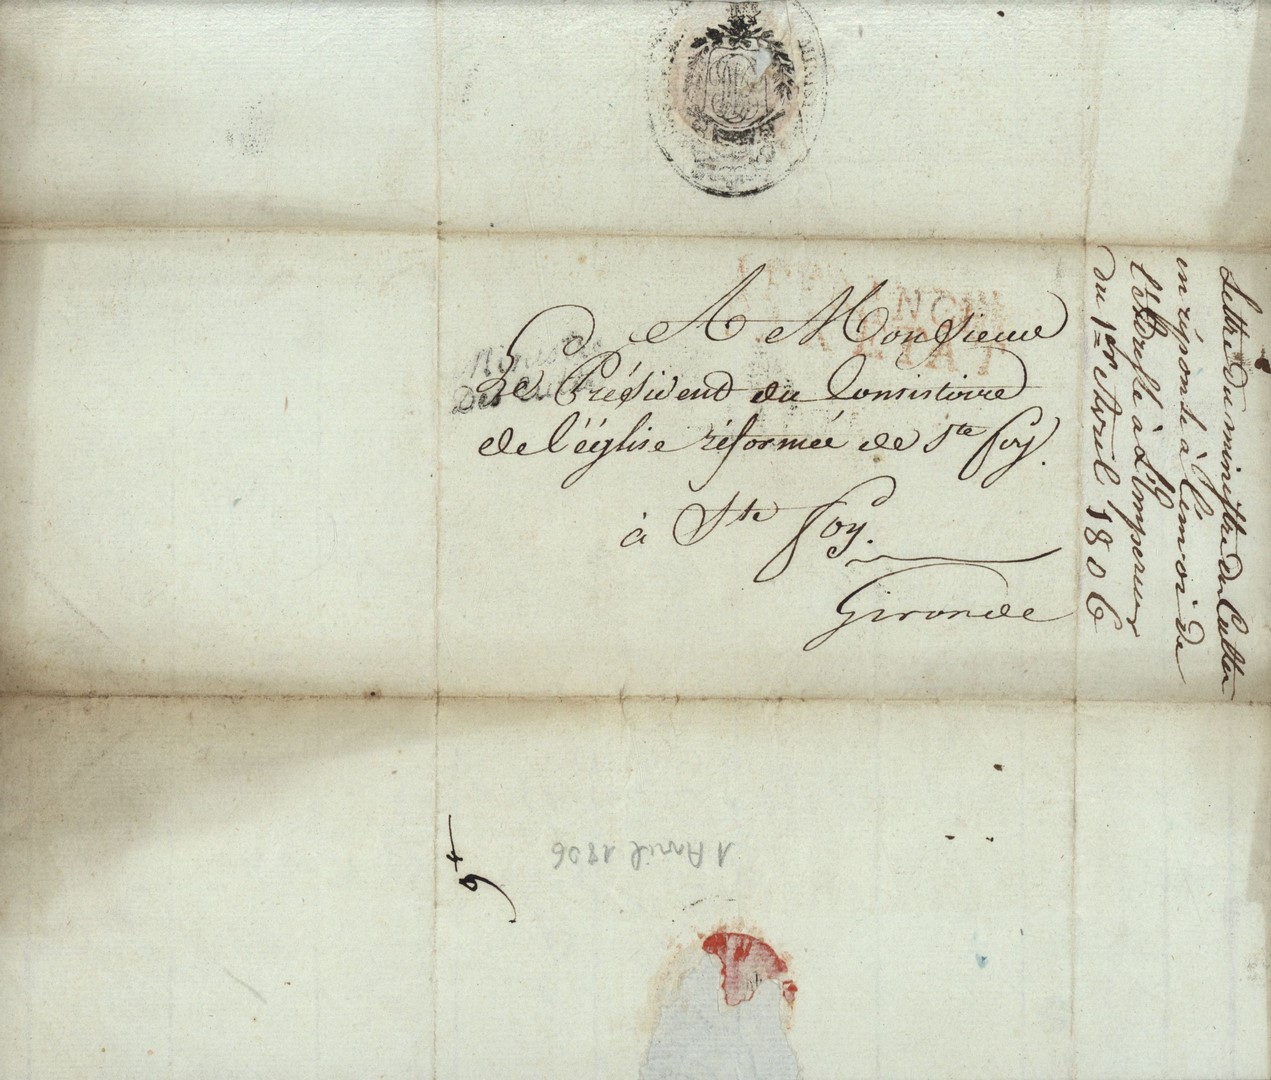 AFFRANCHI
PAR ETAT
Ministre
Des Cultes
A Monsieur
Le Président du Consistoire
de l'église réformée de Ste foy.
à Ste foy.
Gironde
Lettre du ministre du Cultes
en réponse à l'envoi de
l'adresse à L'Empereur
du 1er Avril 1806
1 Avril 1806